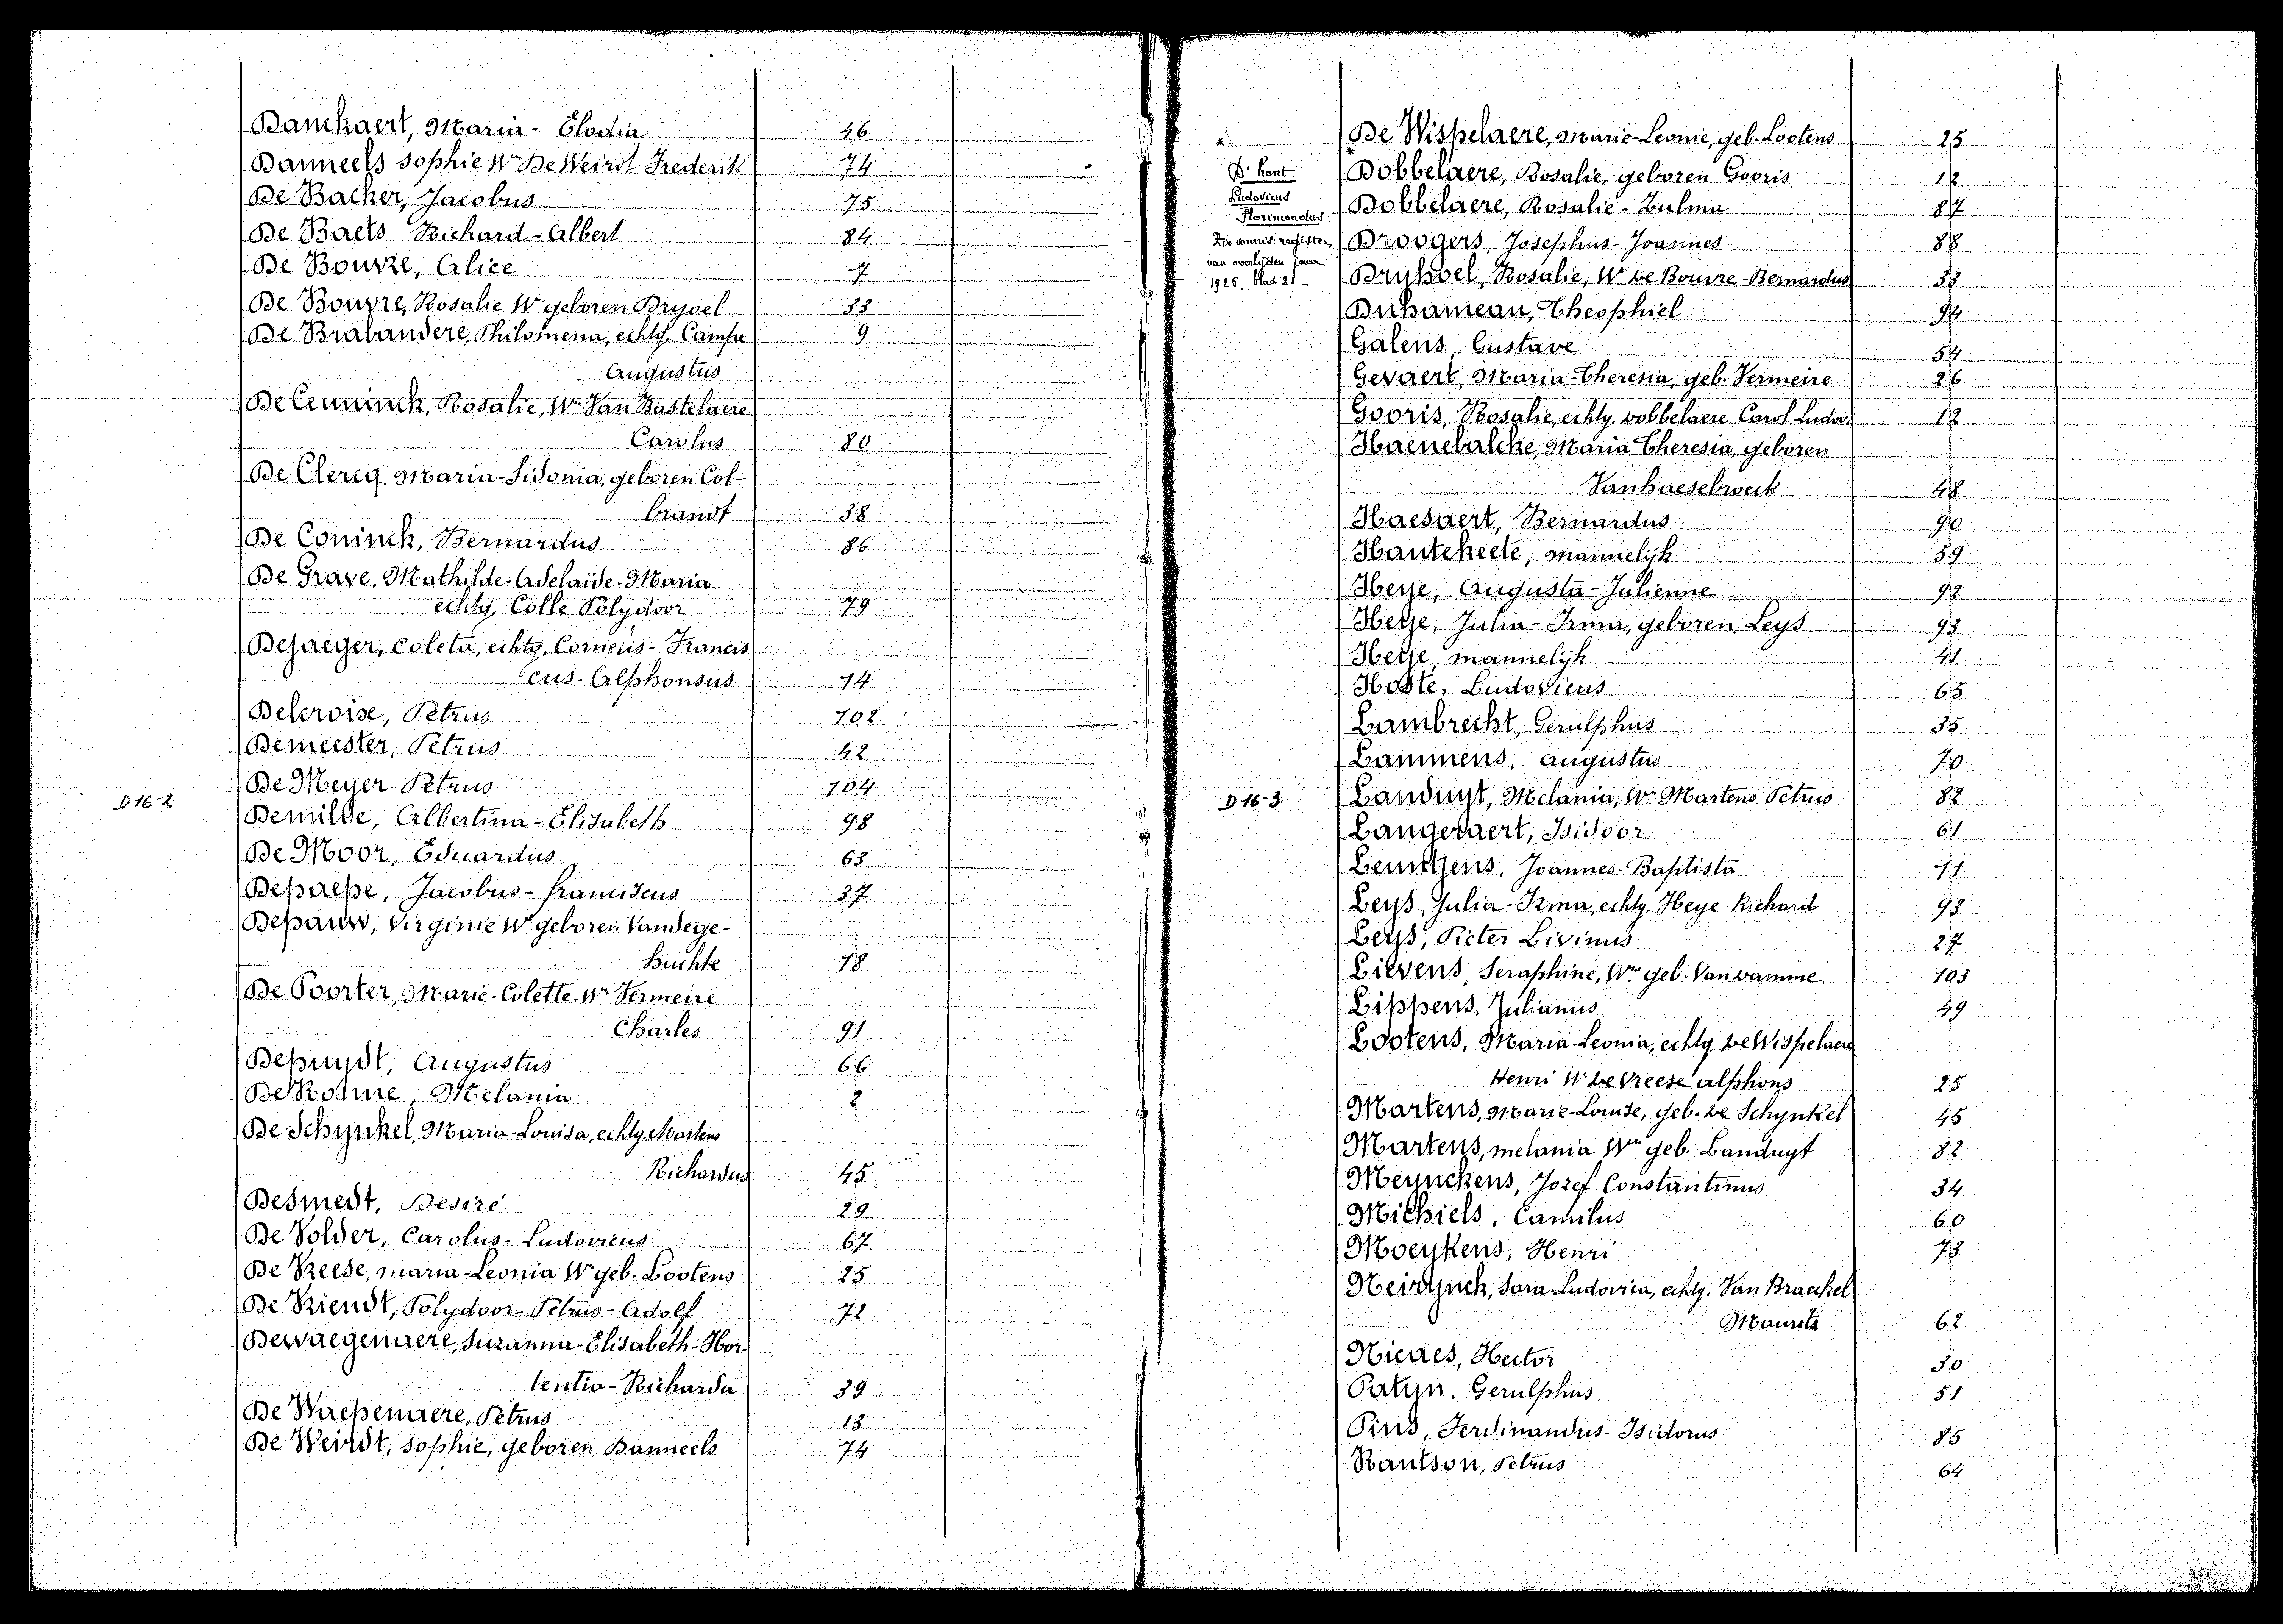 Danckaert, Maria-Elodia 46
Danneels Sophie We De Weirdt Frederik 74
De Backer, Jacobus 75
De Baets Richard-Albert 84
De Bouvre, Alice 7
De Bouvre, Rosalie We geboren Dryoel 33
De Brabandere, Philomena, echtg. Campe 9
Augustus
De Ceuninck, Rosalie, We Van Bastelaere
Carolus 80
De Clercq, Maria-Sidonia, geboren Col-
brandt 38
De Coninck, Bernardus 86
De Grave, Mathilde-Adelaïde-Maria
echtg. Colle Polydoor 79
Dejaeger, Coleta, echtg. Corneiis-Francis
cus-Alphonsus 14
Delcroise, Petrus 102
Demeester, Petrus 42
De Meyer Petrus 104
D 16-2
Demilde, Albertina-Elisabeth 98
De Moor, Eduardus 63
Depaepe, Jacobus-franciscus 37
Depauw, Virginie We geboren Vandege-
huchte 18
De Poorter, Marie-Colette We Vermeire
Charles 91
Depuydt, Augustus 66
De Ronne, Melania 2
De Schynkel, Maria-Louisa, echtg. Martens
Richardus 45
Desmedt, Desiré 29
De Volder, Carolus-Ludovicus 67
De Vreese, maria-Leonia We geb. Lootens 25
De Vriendt, Polydoor-Petrus-Adolf 72
Dewaegenaere, Suzanna-Elisabeth-Hor-
tentia-Richarda 39
De Waepenaere, Petrus 13
De Weirdt, Sophie, geboren Danneels 74
De Wispelaere, Marie-Leonie, geb. Lootens 25
D'hont
Ludovicus
Florimondus
Zie vonnis: register
van overlijden jaar
1925, blad 21
Dobbelaere, Rosalie, geboren Gooris 12
Dobbelaere, Rosalie-Zulma 87
Droogers, Josephus-Joannes 88
Dryhoel, Rosalie, We de Bouvre-Bernardus 33
Duhameau, Theophiel 94
Galens, Gustave 54
Gevaert, Maria-Theresia, geb. Vermeire 26
Gooris, Rosalie, echtg. dobbelaere Carol. Ludov. 12
Haenebalcke, Maria Theresia, geboren
Vanhaesebroeck 48
Haesaert, Bernardus 90
Hautekeete, mannelijk 59
Heye, Augusta-Julienne 92
Heye, Julia-Irma, geboren Leys 93
Heye, mannelijk 41
Hoste, Ludovicus 65
Lambrecht, Gerulphus 35
Lammens, Augustus 70
D 16-3
Landuyt, Melania, We Martens Petrus 82
Langeraert, Isidoor 61
Leuntjens, Joannes-Baptista 11
Leys, Julia-Irma, echtg. Heye Richard 93
Leys, Pieter Livinus 27
Lievens, Seraphine, We geb. Vanvamme 103
Lippens, Julianus 49
Lootens, Maria-Leonia, echtg. de Wispelaere
Henri We de Vreese Alphons 25
Martens, Marie-Louise, geb. de Schynkel 45
Martens, melania We geb. Landuyt 82
Meynckens, Jozef Constantinus 34
Michiels, Camilus 60
Moeykens, Henri 73
Neirynck, Sara-Ludovica, echtg. Van Braeckel
Maurits 62
Nicaes, Hector 30
Patyn, Gerulphus 51
Pius, Ferdinandus-Isidorus 85
Rautson, Petrus 64